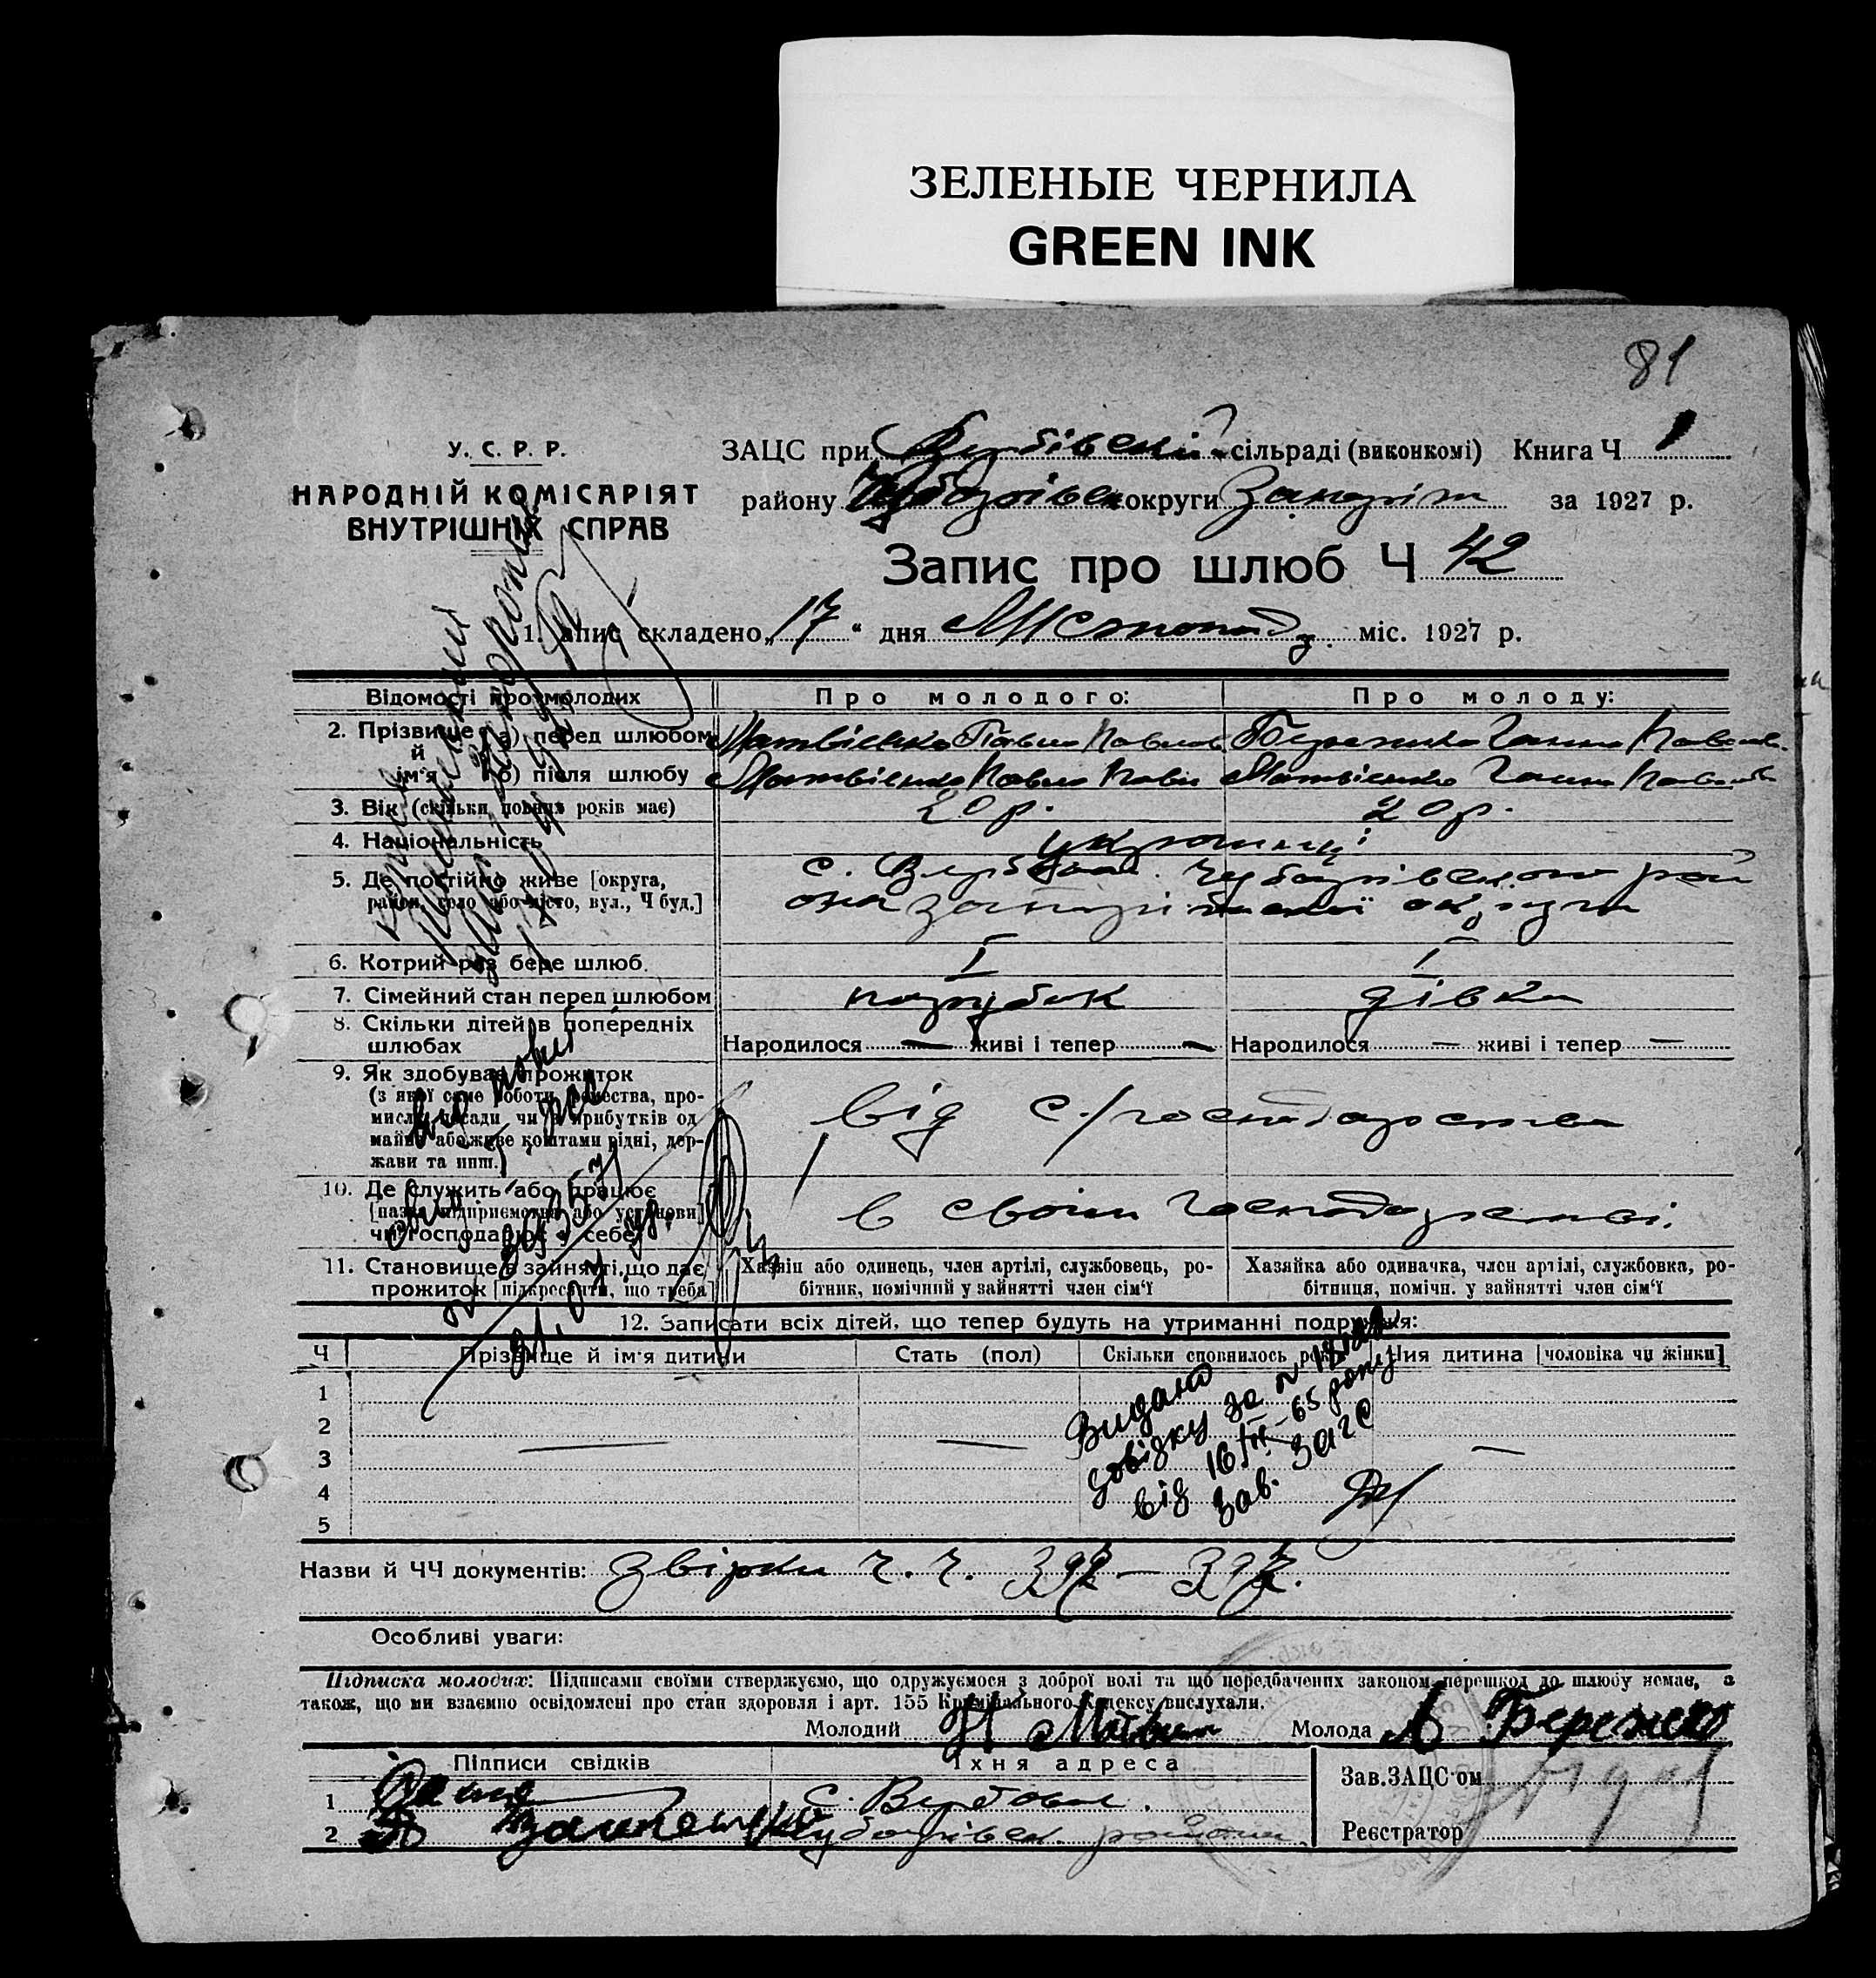 ЗЕЛЕНЫЕ ЧЕРНИЛА
GREEN INK
81
У. С. Р. Р.
НАРОДНІЙ КОМІСАРІЯТ
ВНУТРІШНІХ СПРАВ
ЗАЦС при Вербівській сільраді (виконкомі) Книга Ч 1
району Чубарівськ округи Запоріж за 1927 р.
Запис про шлюб Ч 42
1. Запис складено „17" дня Листопаду міс. 1927 р.
Відомості про молодих
Про молодого:
Про молоду:
2. Прізвище й ім'я а) перед шлюбом Матвієнко Павло Павлов Бережко Ганна Павлов.
б) після шлюбу Матвієнко Павло Павл Матвієнко Ганна Павлов
3. Вік (скільки повних років має) 20 р. 20 р.
4. Національність українці
5. Де постійно живе [округа, район, село або місто, вул., Ч буд.]
с. Вербова Чубарівського рай
она запорізької округи
6. Котрий раз бере шлюб. I I
7. Сімейний стан перед шлюбом парубок дівка
8. Скільки дітей в попередніх шлюбах
Народилося — живі і тепер — Народилося — живі і тепер —
9. Як здобуває прожиток
(з якої саме роботи, ремества, про-
мислу, посади чи з прибутків од
майна або живе коштами рідні, дер-
жави та инш.)
від с/господарства
10. Де служить або працює
[назва підприємства або установи]
чи господарює у себе
в своїм господарстві.
11. Становище в зайнятті, що дає
прожиток [підкреслити, що треба]
Хазяїн або одинець, член артілі, службовець, ро-
бітник, помічний у зайнятті член сім'ї
Хазяйка або одиначка, член артілі, службовка, ро-
бітниця, помічн. у зайнятті член сім'ї
12. Записати всіх дітей, що тепер будуть на утриманні подружжя:
Ч Прізвище й ім'я дитини Стать (пол) Скільки сповнилось років Чия дитина [чоловіка чи жінки]
1
2
3
4
5
Видано
довідку за №
від 16/III-65 року
Зав. ЗАГС
Назви й ЧЧ документів: звірки ч. ч.
Особливі уваги:
Підписка молодих: Підписами своїми стверджуємо, що одружуємося з доброї волі та що передбачених законом перешкод до шлюбу немає, а
також, що ми взаємно освідомлені про стан здоровля і арт. 155 Кримінального Кодексу вислухали.
Молодий Молода Бережко
Підписи свідків
Їхня адреса
Зав. ЗАЦС'ом
1 С. Вербова.
2 Чубарівськ. району
Реєстратор